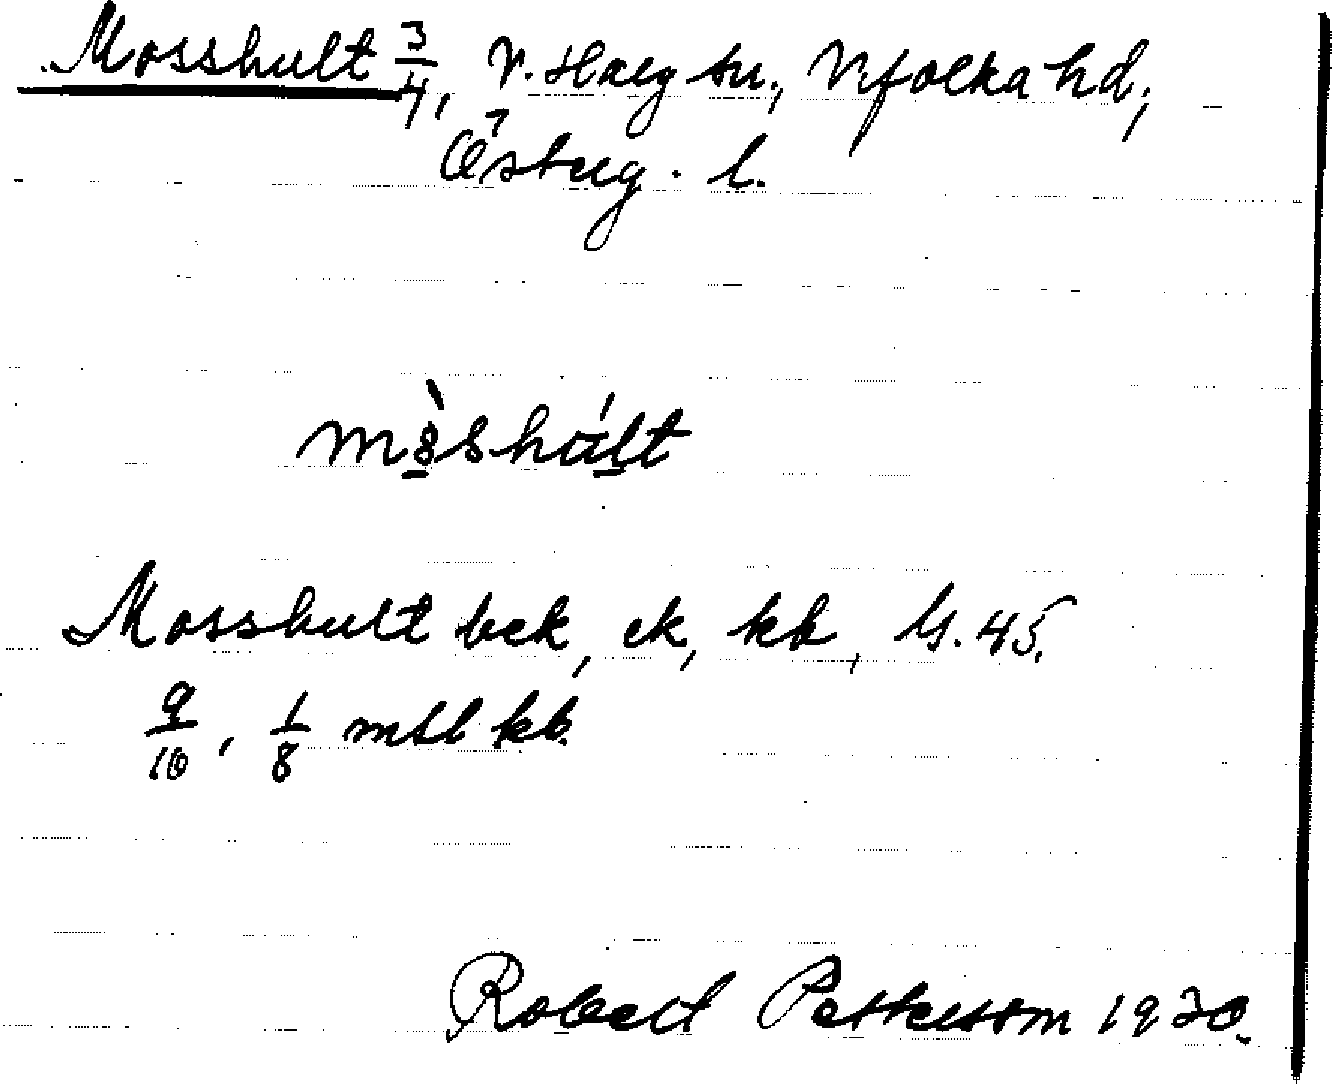 Mosshult 3/4, V. Harg sn, Vifolka hd,
Österg. l.
Mosshult bek, ek, kb, G. 45.
9/10, 1/8 mtl kb.
Robert Pettersson 1930.